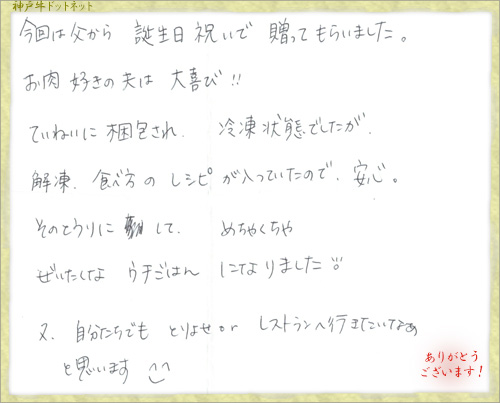 神戸牛ドットネット
今回は父から 誕生日祝いで 贈ってもらいました。
お肉好きの夫は 大喜び!!
ていねいに梱包され、 冷凍状態でしたが、
解凍、食べ方の レシピが入っていたので、安心。
そのとうりに して、 めちゃくちゃ
ぜいたくな ウチごはん になりました
又、自分たちでも とりよせ or レストランへ行きたいなぁ
と思います ^^
ありがとう
ございます!